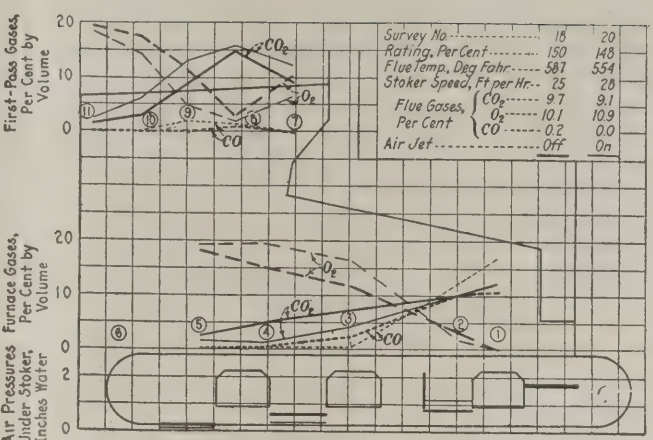 First-Pass Gases,
Per Cent by
Volume
20
10
0
Survey No. 18 20
Rating, Per Cent 150 148
Flue Temp., Deg Fahr. 587 554
Stoker Speed, Ft per Hr. 25 28
Flue Gases, Per Cent
CO2 9.7 9.1
O2 10.1 10.9
CO 0.2 0.0
Air Jet Off On
CO2
O2
CO
11
10
9
8
7
Furnace Gases,
Per Cent by
Volume
20
10
0
O2
CO2
CO
6
5
4
3
2
1
Air Pressures
Under Stoker,
Inches Water
2
0